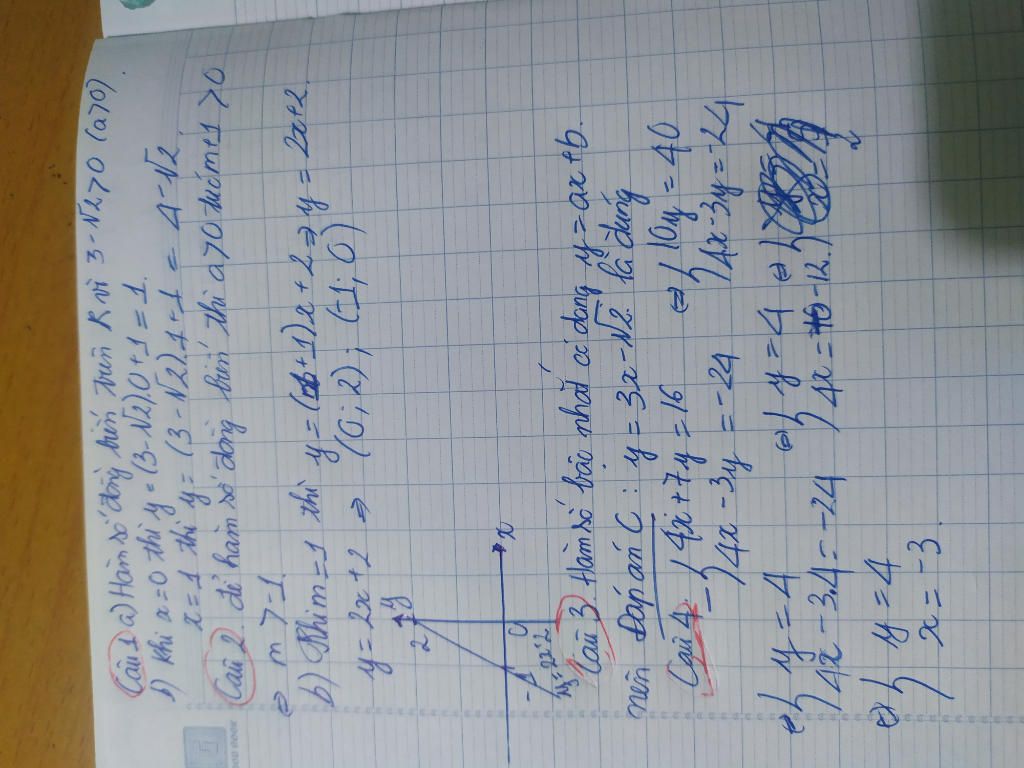 Câu 1 a) Hàm số đồng biến trên R vì 3-√2 > 0 (a>0).
b) Khi x=0 thì y=(3-√2).0+1=1.
x=1 thì y=(3-√2).1+1=4-√2
Câu 2. để hàm số đồng biến thì a>0 m+1>0
⇔ m>-1
b) Khi m=1 thì y=(1+1)x+2⇒y=2x+2
y=2x+2 ⇒ (0;2); (-1;0)
y
2
x
-1
y=2x+2
Câu 3. Hàm số bậc nhất có dạng y=ax+b.
nên Đáp án C: y=3x-√2 là đúng
Câu 4. { 4x+7y=16 ⇔ { 10y=40
4x-3y=-24 4x-3y=-24
⇔ { y=4 ⇔ { y=4 ⇔ {
4x-3.4=-24 4x=-12
⇔ { y=4
x=-3.